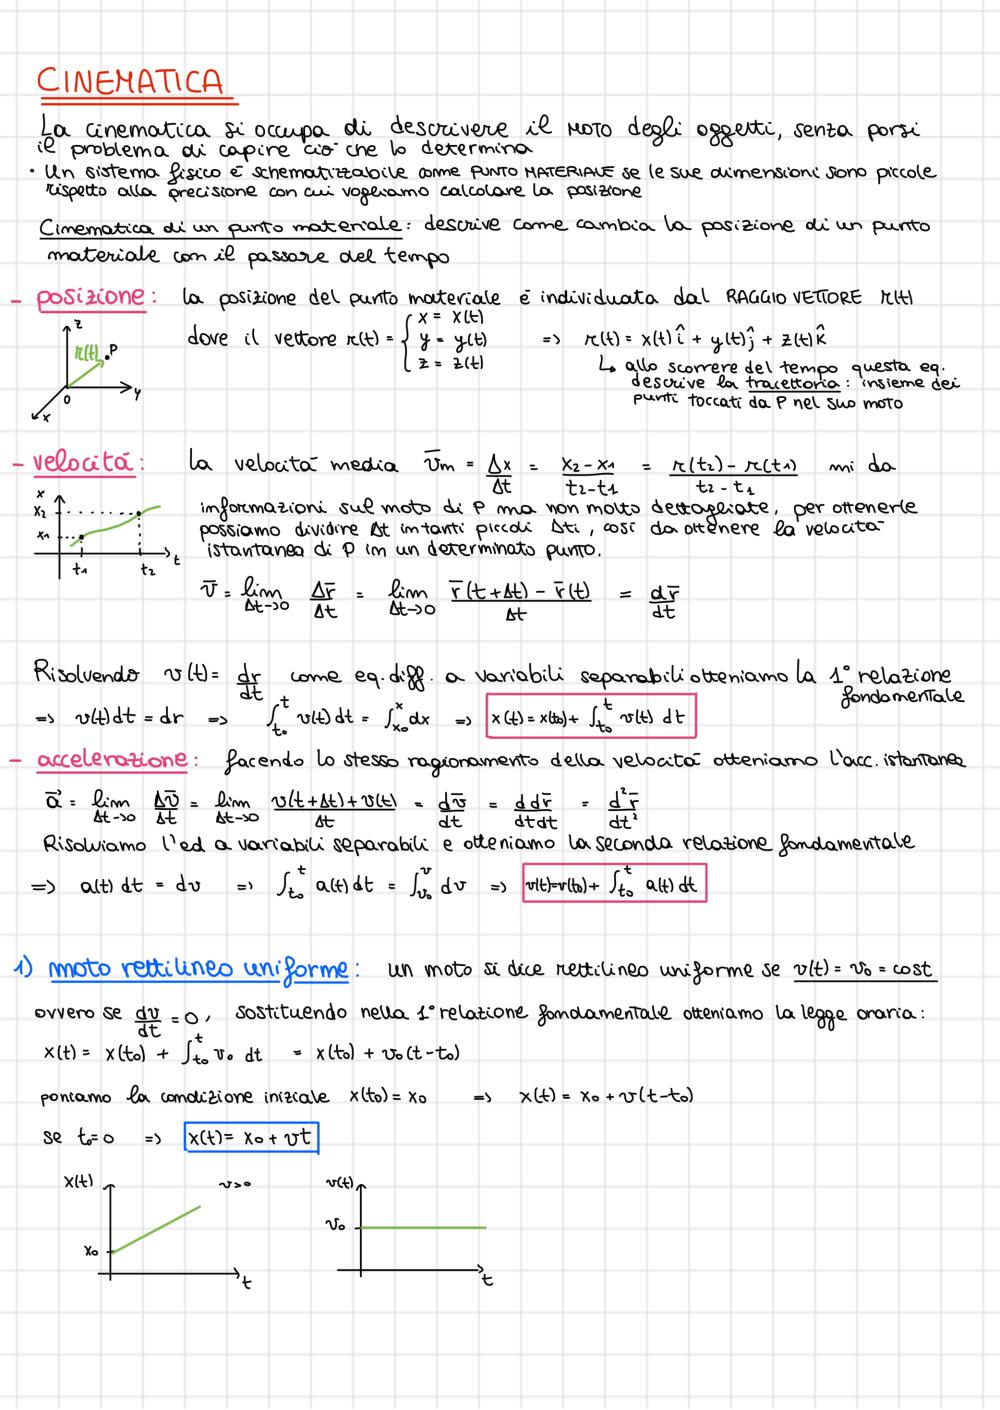 CINEMATICA
La cinematica si occupa di descrivere il MOTO degli oggetti, senza porsi
il problema di capire ciò che lo determina
· Un sistema fisico è schematizzabile come PUNTO MATERIALE se le sue dimensioni sono piccole
rispetto alla precisione con cui vogliamo calcolare la posizione
Cinematica di un punto materiale: descrive come cambia la posizione di un punto
materiale con il passare del tempo
- posizione: la posizione del punto materiale è individuata dal RAGGIO VETTORE r(t)
z r(t) P y x 0
dove il vettore r(t) = { x = x(t) y = y(t) z = z(t) => r(t) = x(t) î + y(t) ĵ + z(t) k̂
↳ allo scorrere del tempo questa eq.
descrive la traiettoria: insieme dei
punti toccati da P nel suo moto
- velocità: la velocità media v̄m = Δx/Δt = x2-x1/t2-t1 = r(t2)-r(t1)/t2-t1 mi da
x x2 x1 t1 t2 t
informazioni sul moto di P ma non molto dettagliate, per ottenerle
possiamo dividere Δt in tanti piccoli Δti, così da ottenere la velocità
istantanea di P in un determinato punto.
v̄ = lim Δt->0 Δr̄/Δt = lim Δt->0 r̄(t+Δt) - r̄(t)/Δt = dr̄/dt
Risolvendo v(t) = dr/dt come eq. diff. a variabili separabili otteniamo la 1° relazione
fondamentale
=> v(t)dt = dr => ∫t0^t v(t) dt = ∫x0^x dx => x(t) = x(t0) + ∫t0^t v(t) dt
- accelerazione: facendo lo stesso ragionamento della velocità otteniamo l'acc. istantanea
a⃗ = lim Δt->0 Δv̄/Δt = lim Δt->0 v(t+Δt)+v(t)/Δt = dv̄/dt = d dr̄/dt dt = d²r̄/dt²
Risolviamo l'ed a variabili separabili e otteniamo la seconda relazione fondamentale
=> a(t) dt = dv => ∫t0^t a(t) dt = ∫v0^v dv => v(t)=v(t0)+ ∫t0^t a(t) dt
1) moto rettilineo uniforme: un moto si dice rettilineo uniforme se v(t) = v0 = cost
ovvero se dv/dt = 0, sostituendo nella 1° relazione fondamentale otteniamo la legge oraria:
x(t) = x(t0) + ∫t0^t v0 dt = x(t0) + v0(t-t0)
poniamo la condizione iniziale x(t0) = x0 => x(t) = x0 + v(t-t0)
se t0=0 => x(t) = x0 + vt
x(t) v>0 v(t)
x0 v0
t t